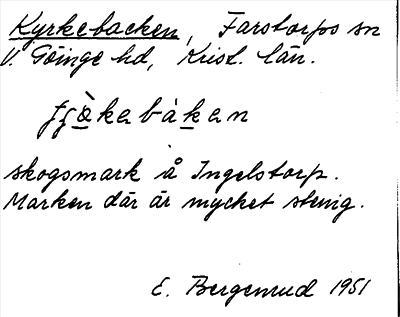 Kyrkebacken, Farstorps sn
V. Göinge hd, Krist. län.
skogsmark å Ingelstorp.
Marken där är mycket stenig.
E. Bergenrud 1951